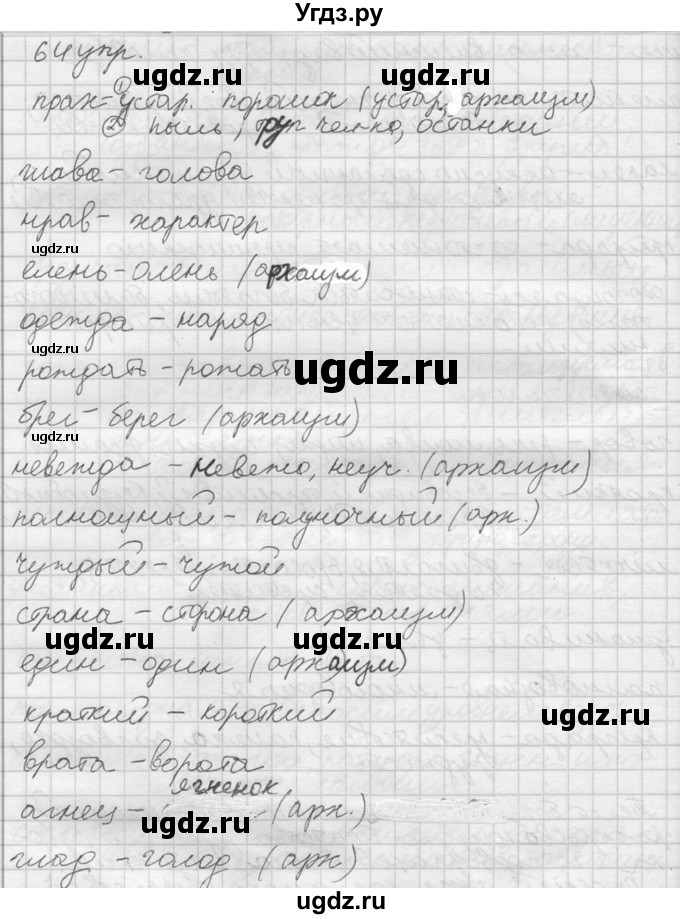 Угдз.ру
64 упр.
прах = ① устар. порошок (устар, архаизм)
② пыль, труп чел-ка, останки
глава - голова
нрав - характер
елень - олень (архаизм)
одежда - наряд
рождать - рожать
брег - берег (архаизм)
невежда - невежа, неуч. (архаизм)
полнощный - полуночный (арх.)
чуждый - чужой
страна - сторона (архаизм)
един - один (архаизм)
краткий - короткий
врата - ворота
агнец - ягненок (арх.)
глад - голод (арх)
ugdz.ru
ugdz.ru
ugdz.ru
ugdz.ru
ugdz.ru
ugdz.ru
ugdz.ru
ugdz.ru
ugdz.ru
ugdz.ru
ugdz.ru
ugdz.ru